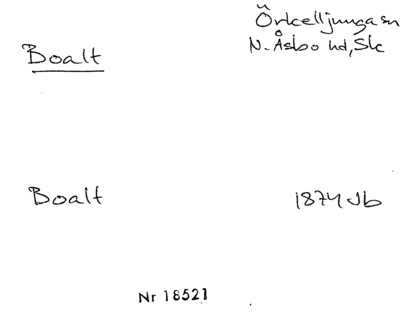 Örkelljunga sn
Boalt
N. Åsbo hd, Sk
Boalt
1874 Jb
Nr 18521